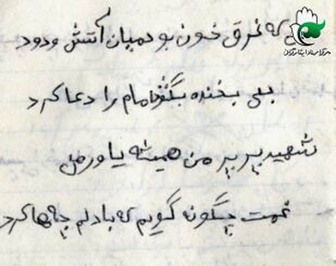 که غرق خون بود میان آتش و دود
بلی بخنده بگفتا امام را دعا کرد
شهید پرپر من همیشه یاور من
غمت چگونه گویم که با دلم چه ها کرد